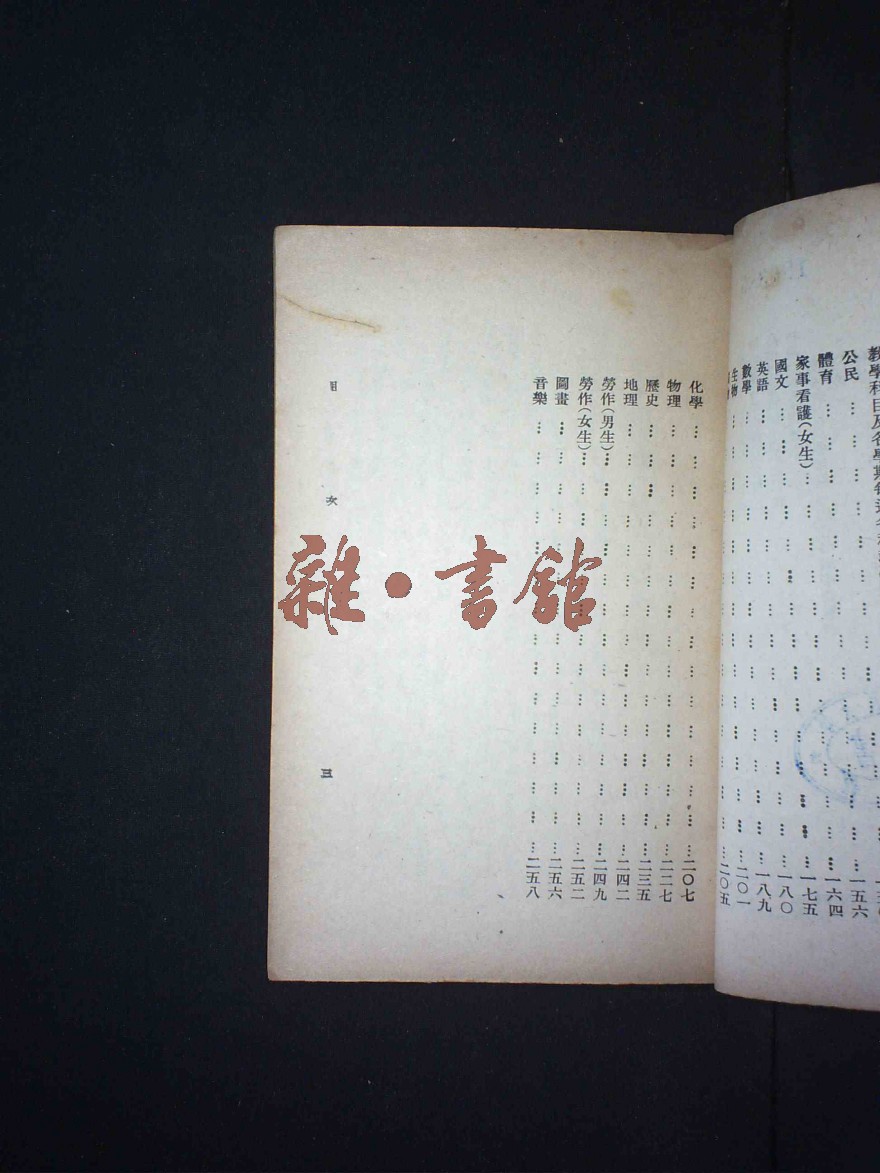 公民……一五六
體育……一六四
家事看護(女生)……一七五
國文……一八〇
英語……一八九
數學……二〇一
生物……二〇五
化學……二〇七
物理……二二七
歷史……二三五
地理……二四二
勞作(男生)……二四九
勞作(女生)……二五二
圖畫……二五六
音樂……二五八
目次 三
雜·書館